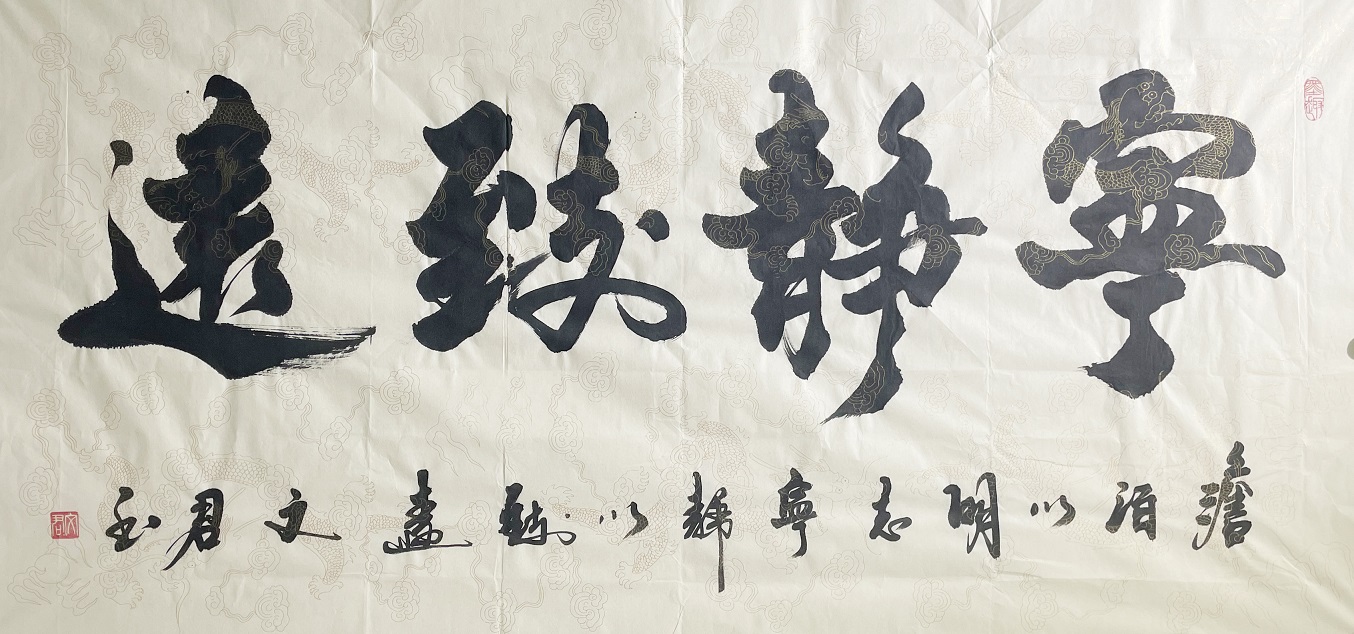 寧靜致遠
澹泊以明志寧靜以致遠文君玉
文君